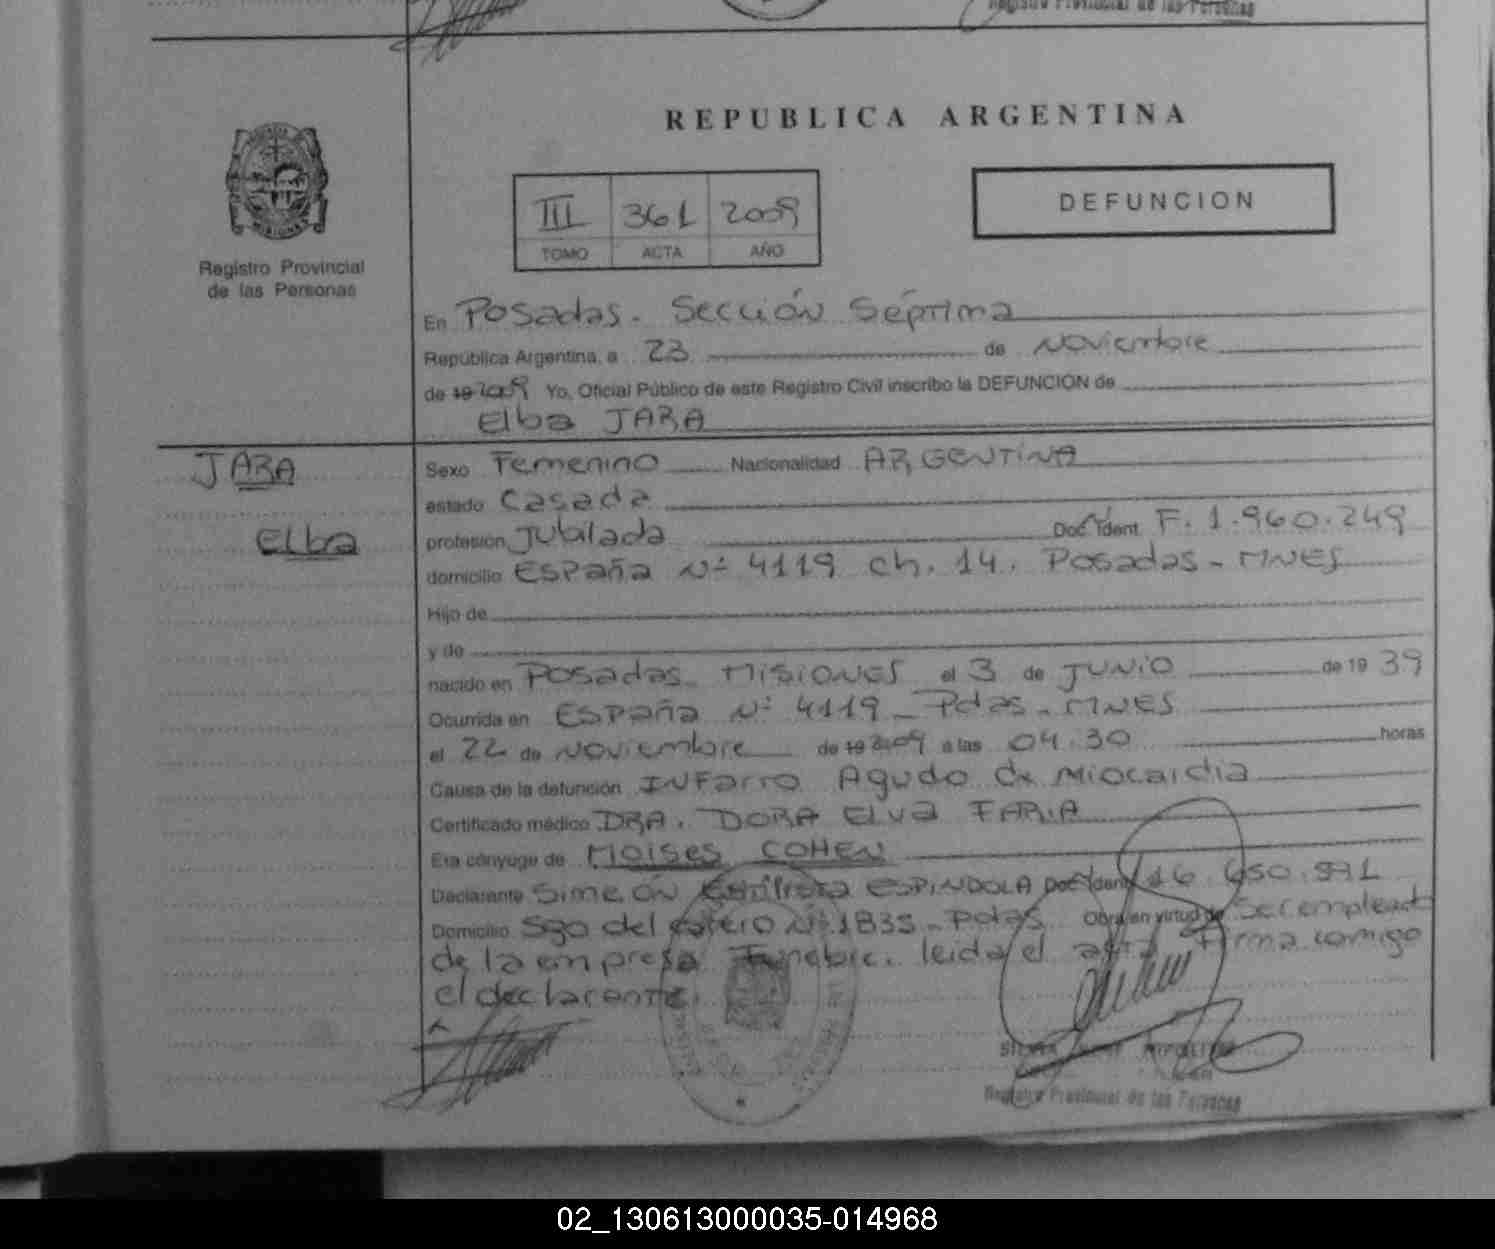 Registro Provincial de las Personas
REPUBLICA ARGENTINA
MISIONES
Registro Provincial
de las Personas
III 361 2009
TOMO ACTA AÑO
DEFUNCION
En Posadas. Sección Séptima
República Argentina, a 23 de Noviembre
de 19 2009 Yo, Oficial Público de este Registro Civil inscribo la DEFUNCION de
Elba JARA
JARA
Elba
Sexo Femenino Nacionalidad ARGENTINA
estado Casada
profesión Jubilada Doc. Ident. F. 1.960.249
domicilio ESPAña Nº 4119 ch. 14. Posadas - MNES
Hijo de
y de
nacido en Posadas - MISIONES el 3 de JUNIO de 19 39
Ocurrida en ESPAña Nº 4119 - Pdas - MNES
el 22 de Noviembre de 19 2009 a las 04:30 horas
Causa de la defunción INFarto Agudo de Miocardio
Certificado médico DRA. DORA Elva FARIA
Era cónyuge de MOISES COHEN
Declarante Simeón ESPINDOLA Doc. Ident. 16.650.991
Domicilio Sgo del estero Nº 1835 - Pdas Obra en virtud de Ser empleado
de la empresa Funebre. leida el acta firma comigo
el declarante.
Registro Provincial de las Personas
02_130613000035-014968